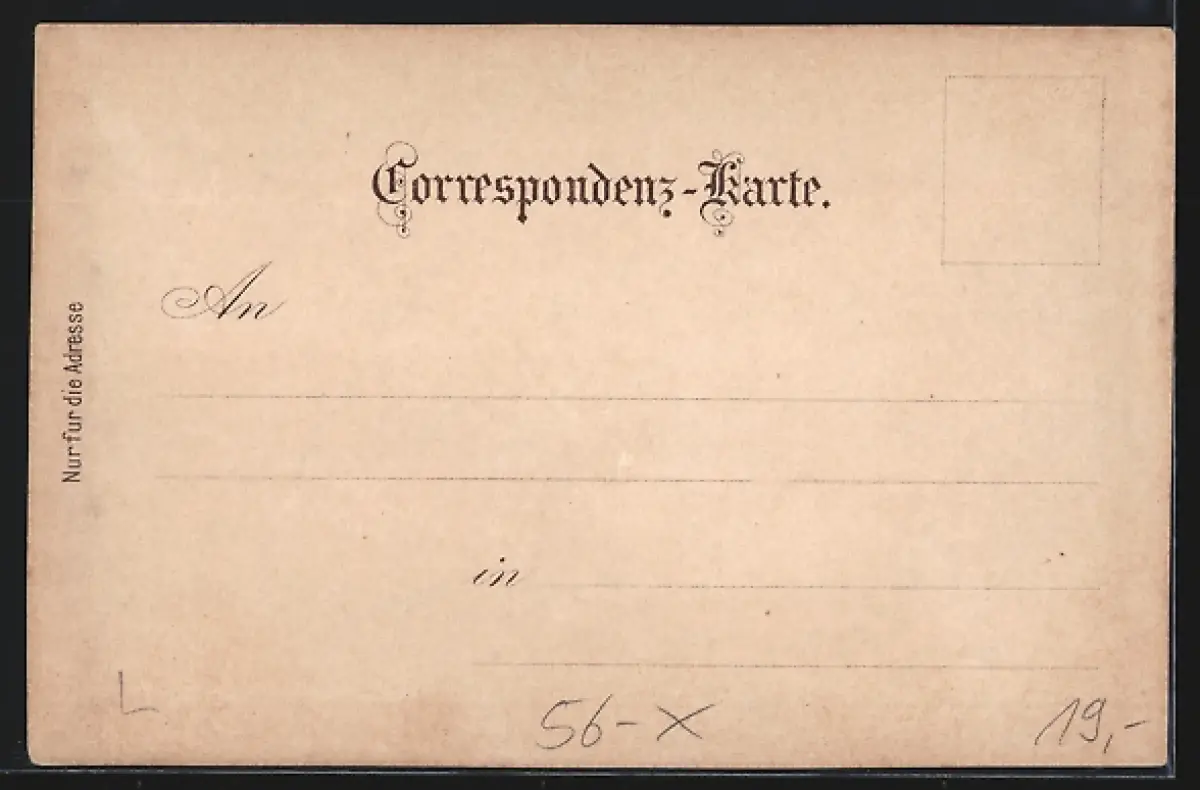 Correspondenz-Karte.
An
Nur fur die Adresse
in
L
56-X
19,-